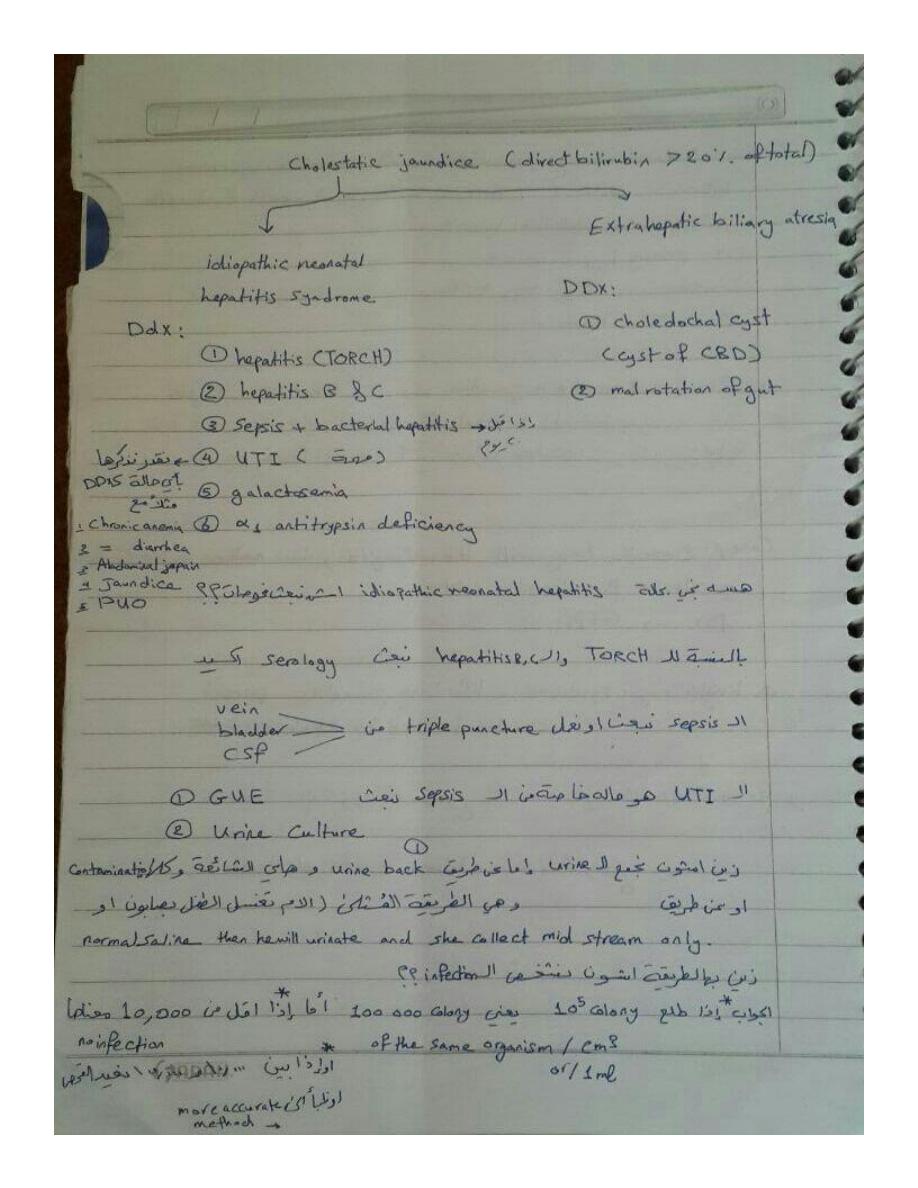 Cholestatic jaundice (direct bilirubin > 20% of total)
Extrahepatic biliary atresia
idiopathic neonatal
hepatitis syndrome.
DDX:
Ddx:
① choledochal cyst
(cyst of CBD)
② malrotation of gut
① hepatitis (TORCH)
② hepatitis B & C
③ Sepsis + bacterial hepatitis → إذا قبل
يوم
④ UTI (مهمة) ← نقدر نذكرها
بأي حالة DDXS
مثلاً مع
1 Chronic anemia
2 = diarrhea
3 Abdominal pain
4 Jaundice
5 PUO
⑤ galactosemia
⑥ α1 antitrypsin deficiency
هسه تجي حالة idiopathic neonatal hepatitis اشنو نبعث فحوصات؟؟
بالنسبة لل TORCH وال hepatitis B,C نبعث serology اكيد
ال sepsis نبعث او نعمل triple puncture من
vein
bladder
CSF
ال UTI هو حالة خاصة من ال sepsis نبعث
① GUE
② Urine Culture
زين اشلون نجمع ال urine إما عن طريق ① urine back و هاي الشائعة و كلا Contamination
او عن طريق وهي الطريقة المُثلى (الام تغسل الطفل بصابون او
normal saline then he will urinate and she collect mid stream only.
زين بهالطريقة اشلون نشخص ال infection؟؟
الجواب * إذا طلع 10⁵ colony يعني 100 000 colony
of the same organism / cm³
or / 1 ml
* أما إذا اقل من 10,000 معناها
no infection
* او إذا بين نعيد الفحص
او نلجأ الى more accurate
method →